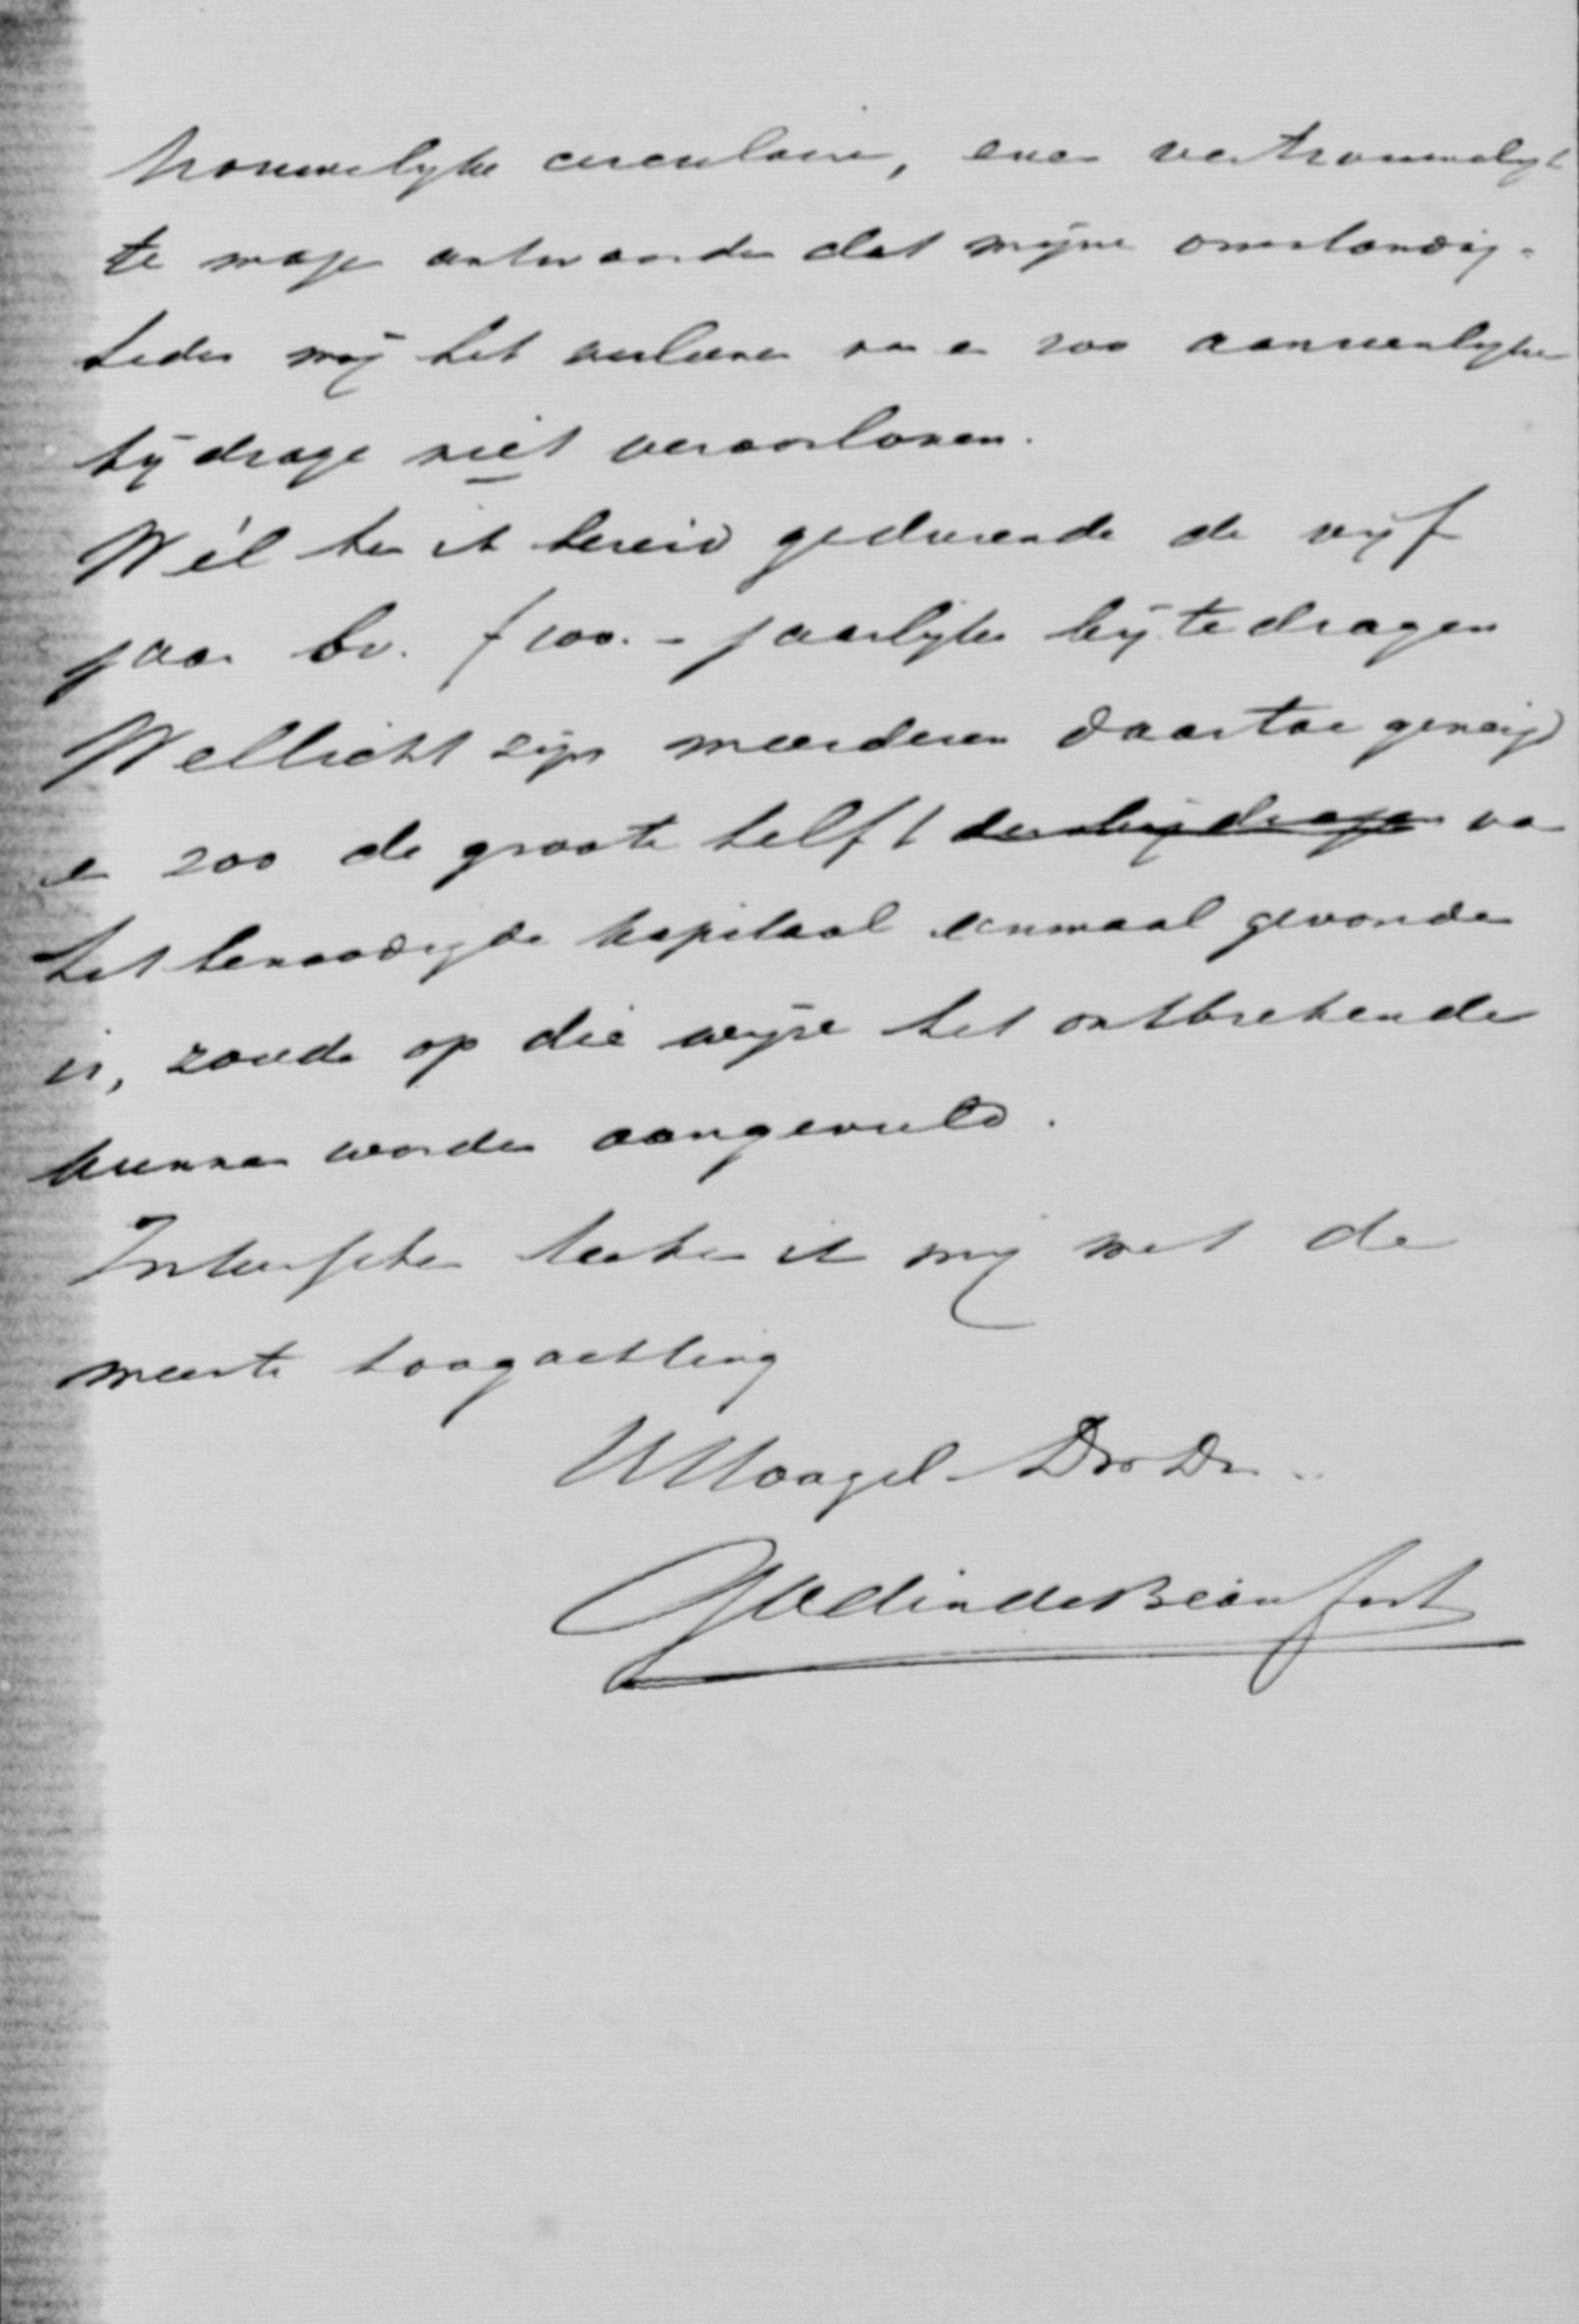 trouwelijke circulaire, even vertrouwelijk
te mogen antwoorden dat mijne omstandig-
heden mij het verleenen van een zoo aanzienlijke
bijdrage niet veroorloven.
Wèl ben ik bereid gedurende de vijf
jaar bv. f 100.- jaarlijks bij te dragen
Wellicht zijn meerderen daartoe geneigd
en zoo de groote helft der bijdragen van
het benoodigde kapitaal eenmaal gevonden
is, zoude op die wijze het ontbrekende
kunnen worden aangevuld.
Intusschen teeken ik mij met de
meeste hoogachting
UHoogEd. Dw Dr.
de Beaufort